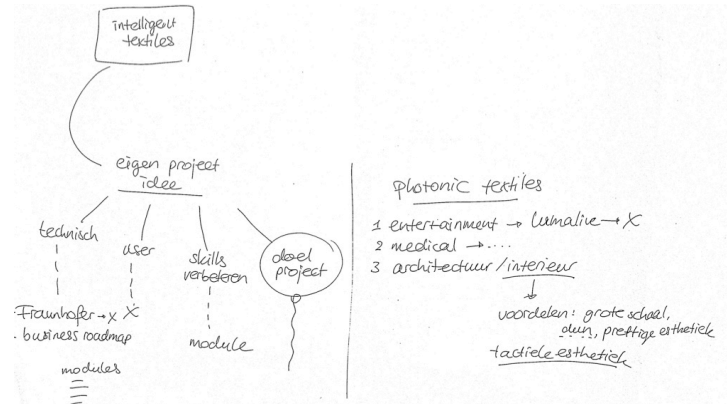 intelligent
textiles
eigen project
idee
technisch
user
skills
verbeteren
doel
project
· Fraunhofer → x
X
· business roadmap
module
modules
photonic textiles
1 entertainment → Lumalive → X
2 medical → ....
3 architectuur / interieur
voordelen: grote schaal,
dun, prettige esthetiek
tactiele esthetiek